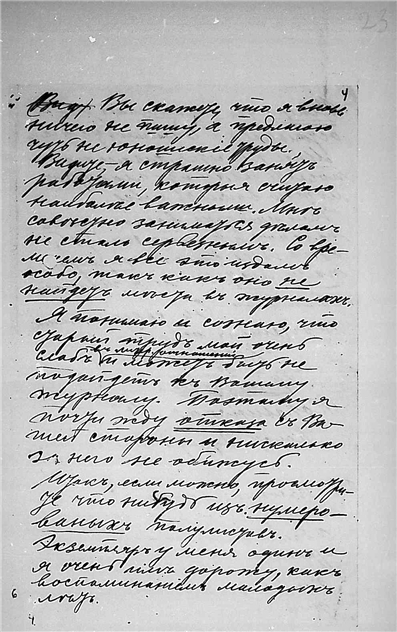 23
4
Вы скажете, что я вновь
ничего не пишу, а предлагаю
чуть не юношескіе труды.
я страшно занятъ
работами, которыя считаю
наиболѣе важными. Мнѣ
совѣстно заниматься дѣломъ
не столь серьезнымъ. Со вре-
мене́мъ я все это издамъ
особо, такъ какъ оно не
найдетъ мѣста въ журналахъ.
Я понимаю и сознаю, что
старый трудъ мой очень
слабъ въ литер. отношеніи и можетъ быть не
подойдетъ къ Вашему
журналу. Поэтому я
почти жду отказа съ Ва-
шей стороны и нисколько
за него не обижусь.
Итакъ, если можно, просмотри-
те что нибудь изъ нумеро-
ваныхъ полулистовъ.
Экземпляръ у меня одинъ и
я очень имъ дорожу, какъ
воспоминаніемъ молодыхъ
лѣтъ.
6
4